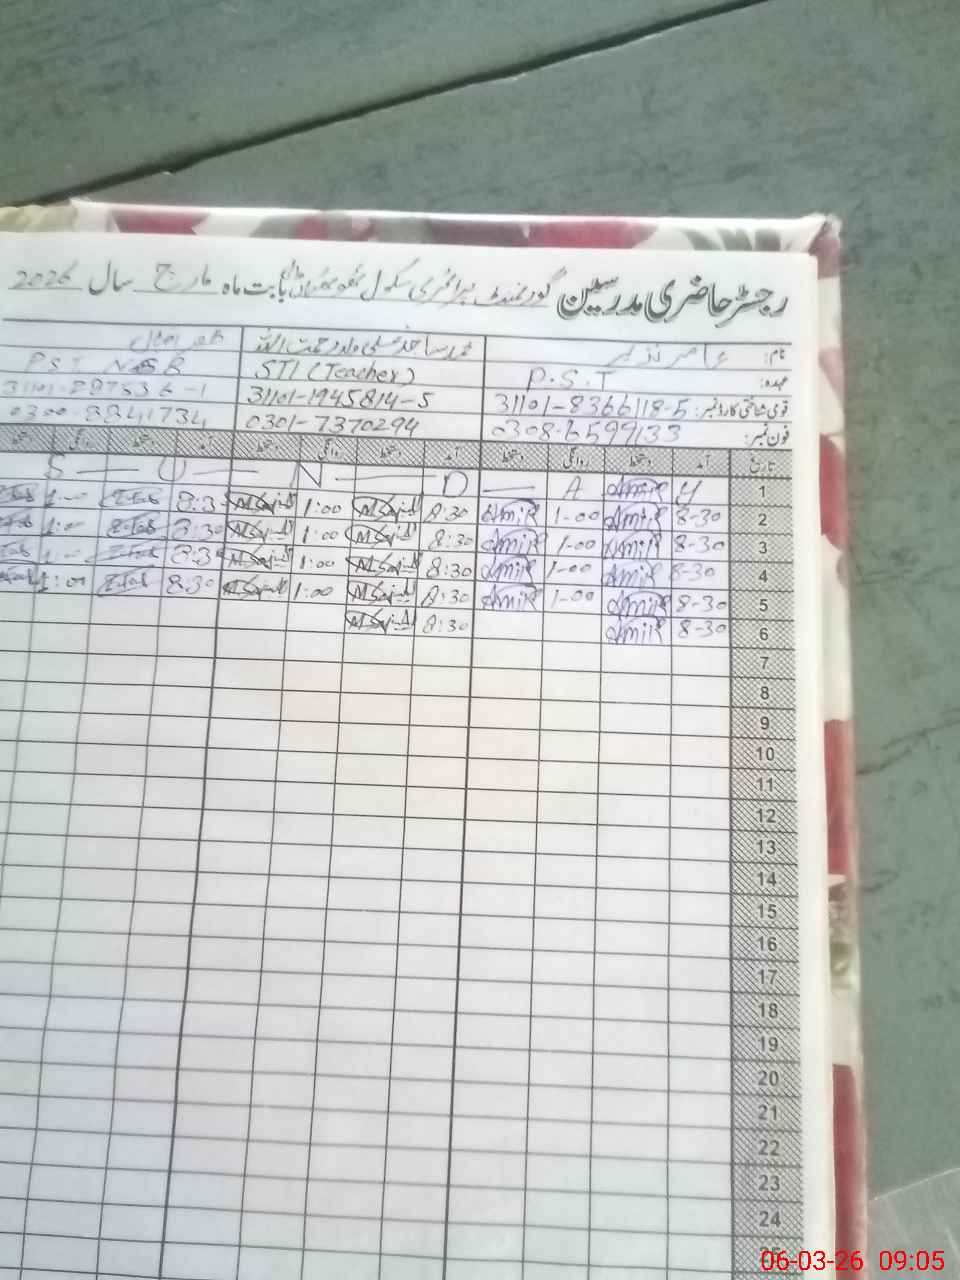 رجسٹر حاضری مدرسین گورنمنٹ پرائمری سکول بابت ماہ مارچ سال 2026
نام: عامر نذیر
محمد ساجد علی ولد رحمت اللہ
ظفر اقبال
عہدہ: P.S.T
STI (Teacher)
P.S.T
قومی شناختی کارڈ نمبر: 31101-8366118-5
31101-1945814-5
فون نمبر: 0308-6599133
0301-7370294
0300-8841734
تاریخ آمد دستخط روانگی دستخط آمد دستخط روانگی دستخط آمد دستخط روانگی
1 S — U — N — D — A Y
2 8-30 Amir 1-00 Amir 8:30 M Sajid 1:00 M Sajid 8:30
3 8-30 Amir 1-00 Amir 8:30 M Sajid 1:00 M Sajid 8:30
4 8-30 Amir 1-00 Amir 8:30 M Sajid 1:00 M Sajid 8:3
5 8-30 Amir 1-00 Amir 8:30 M Sajid 1:00 M Sajid 8:30 1:00
6 8-30 Amir 8:30 M Sajid
7
8
9
10
11
12
13
14
15
16
17
18
19
20
21
22
23
24
25
06-03-26 09:05